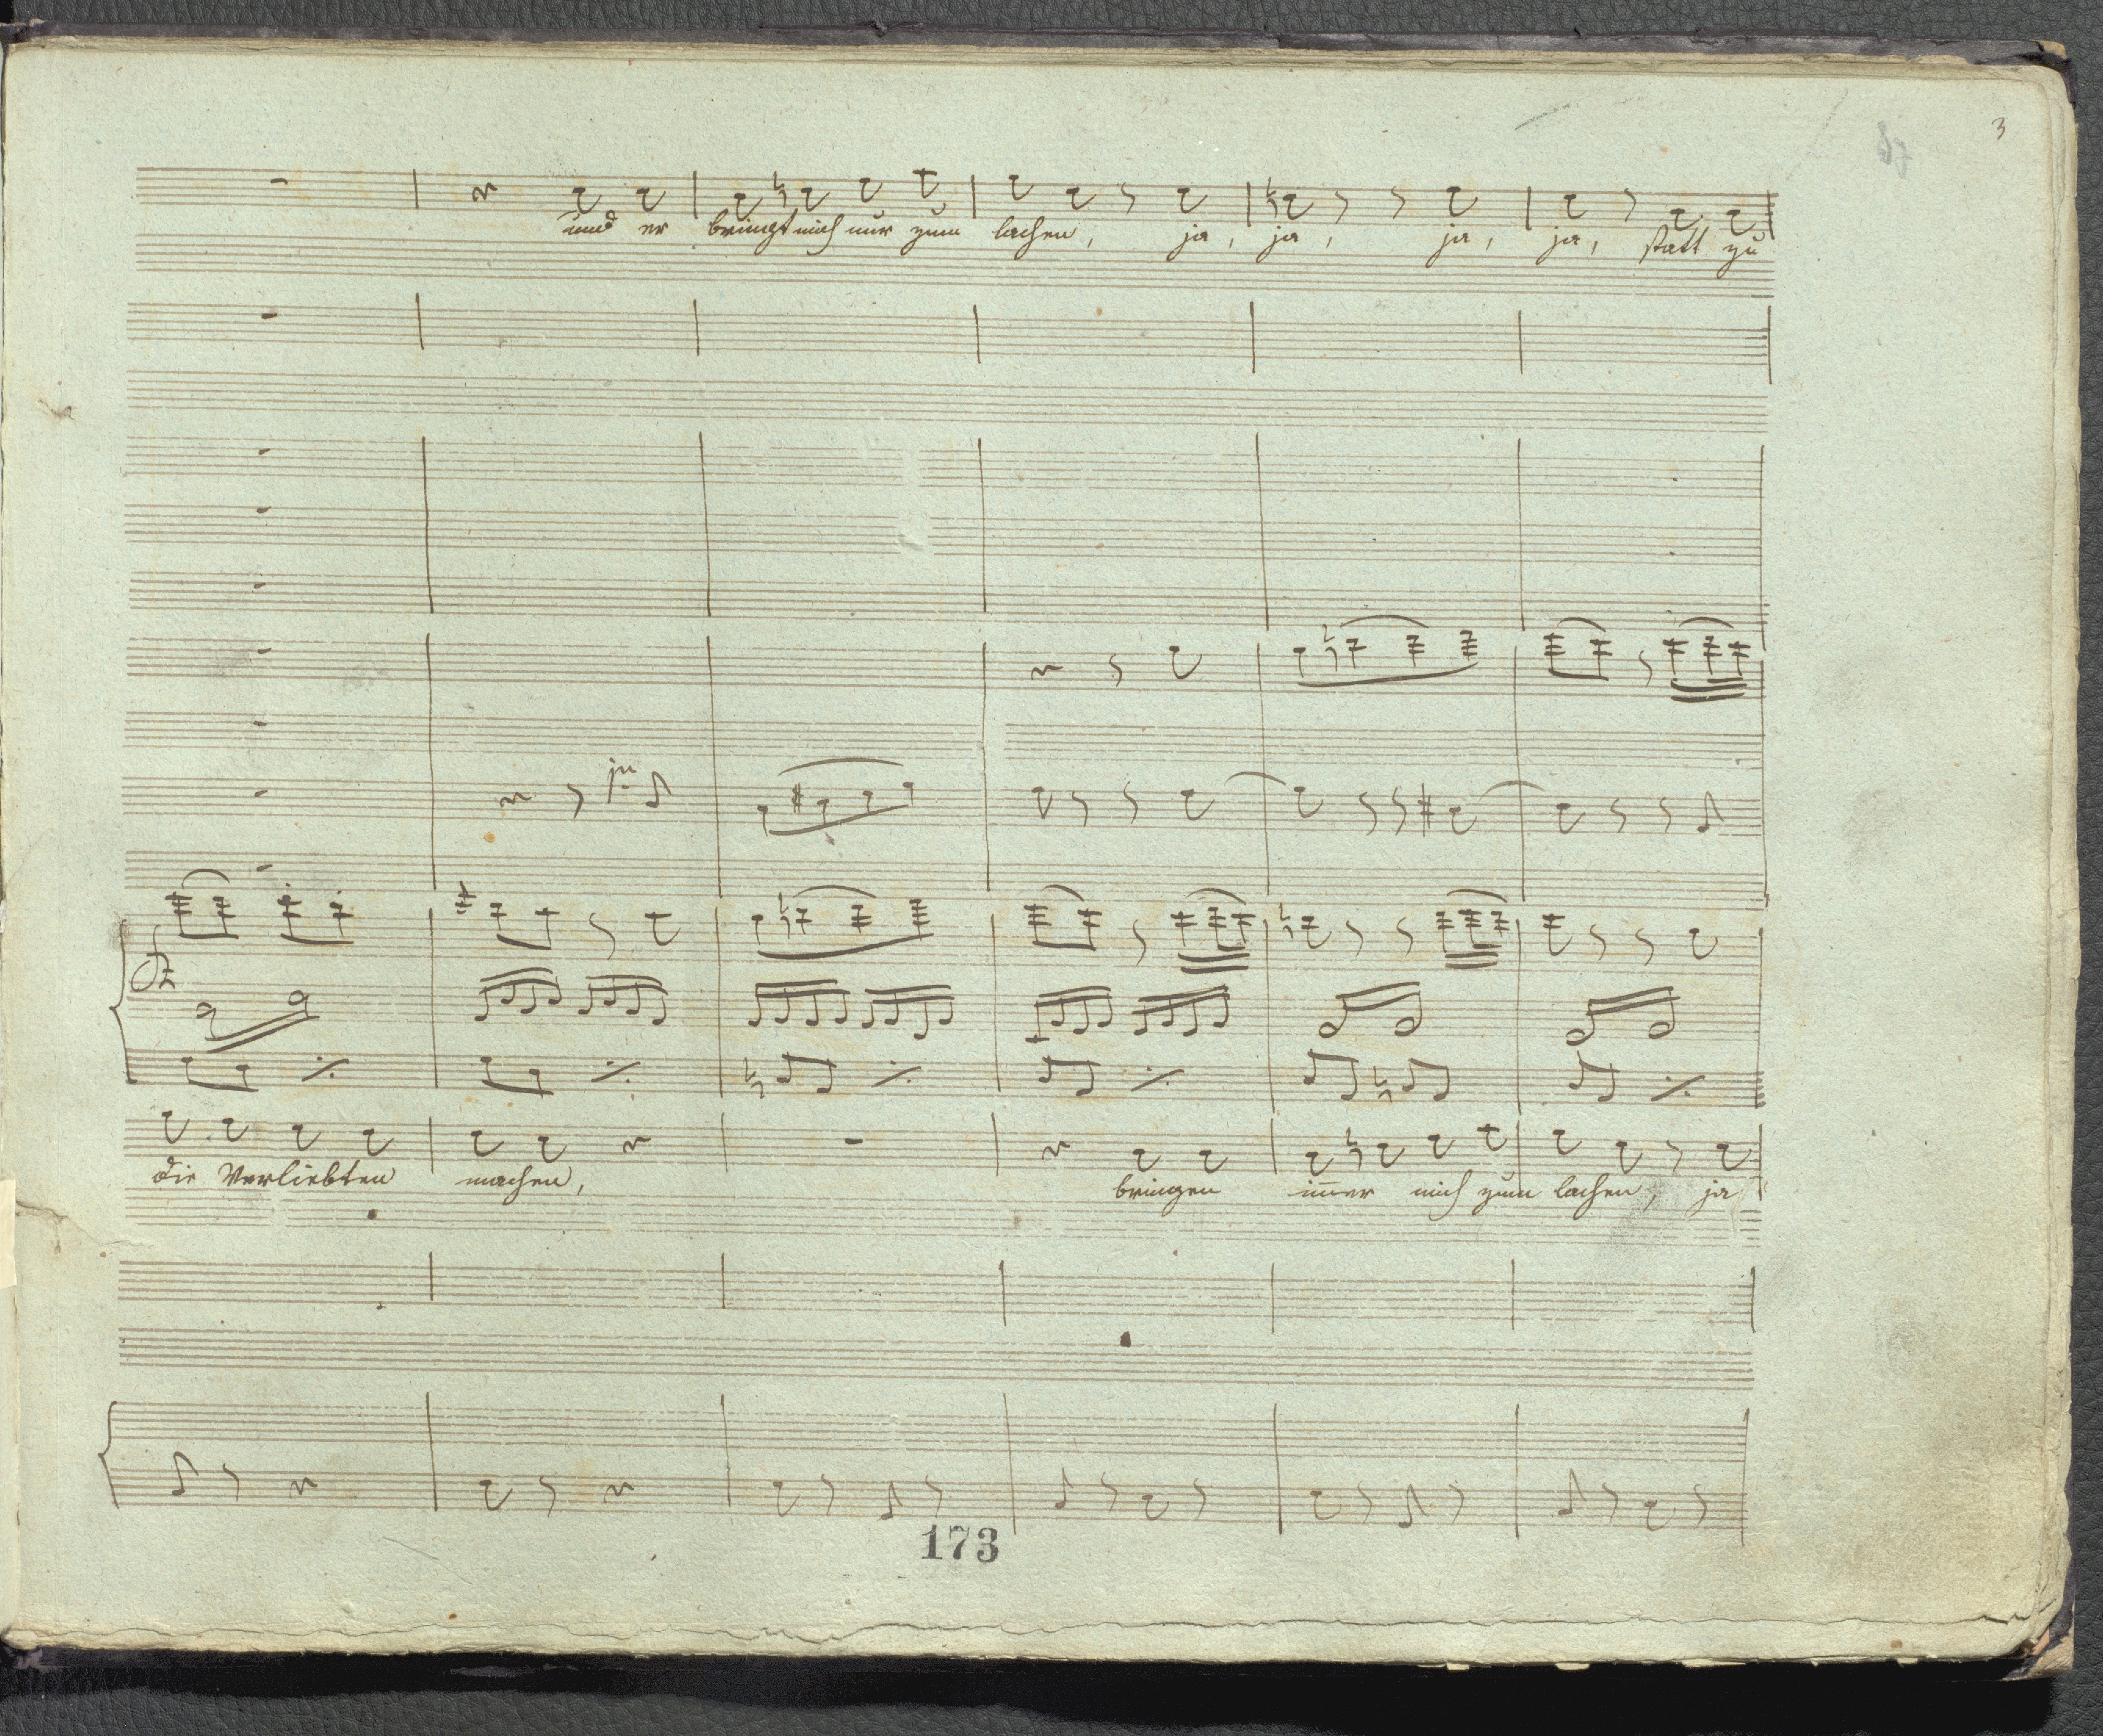 3
und er bringt mich nur zum lachen, ja, ja, ja, ja, statt zu
die Verliebten machen, bringen im̅er mich zum lachen, ja
173